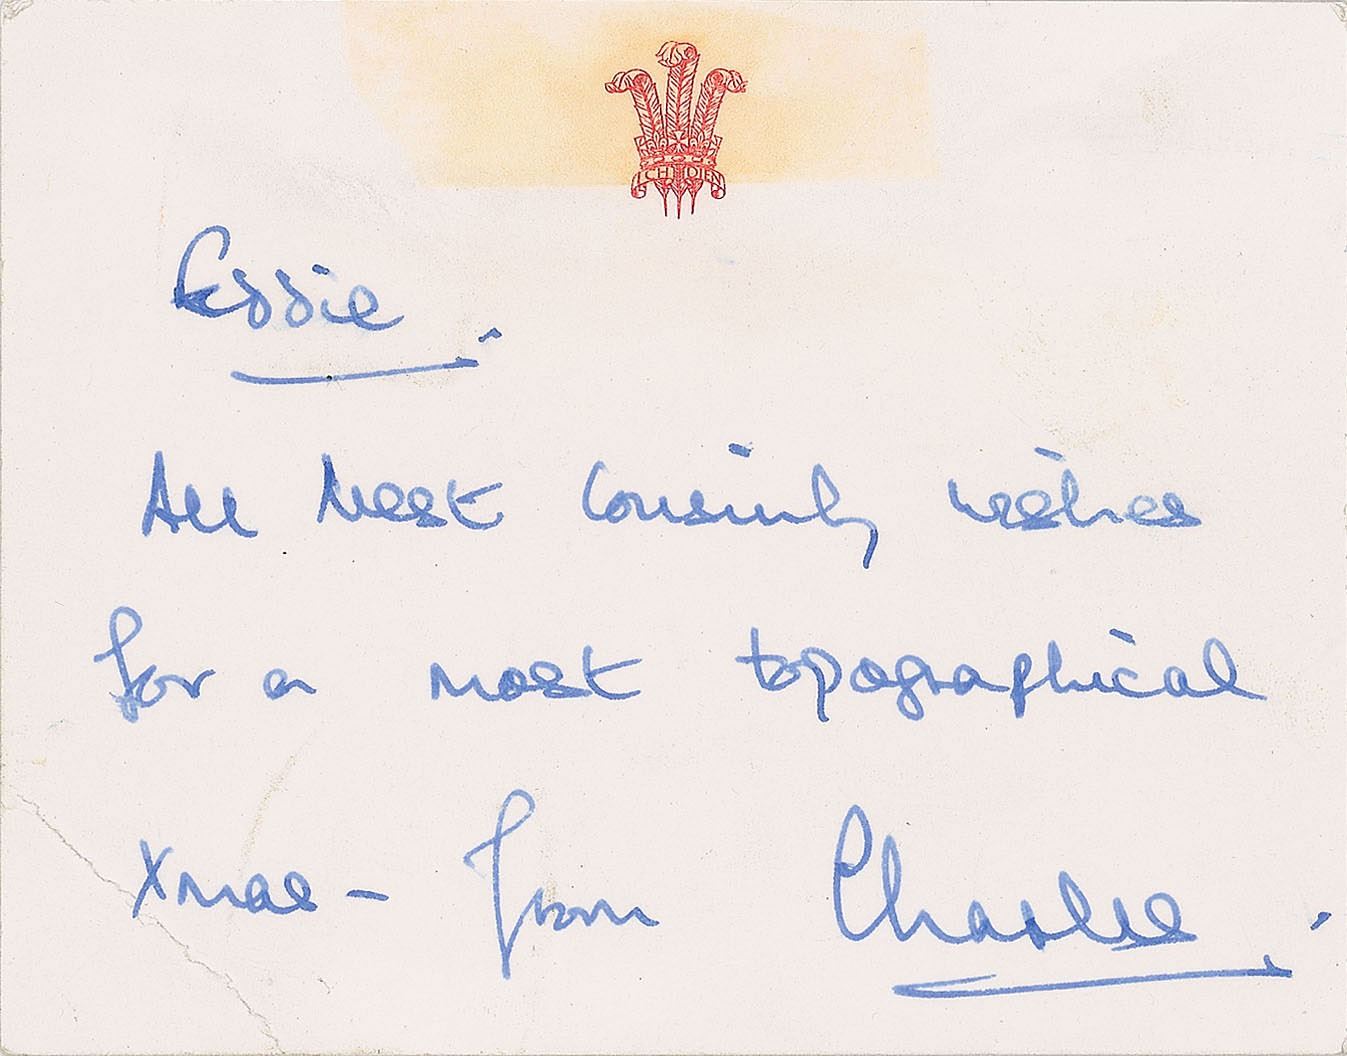 ICH DIEN
Eddie.
All Best Cousinly wishes
for a most topographical
Xmas - from Charlie.